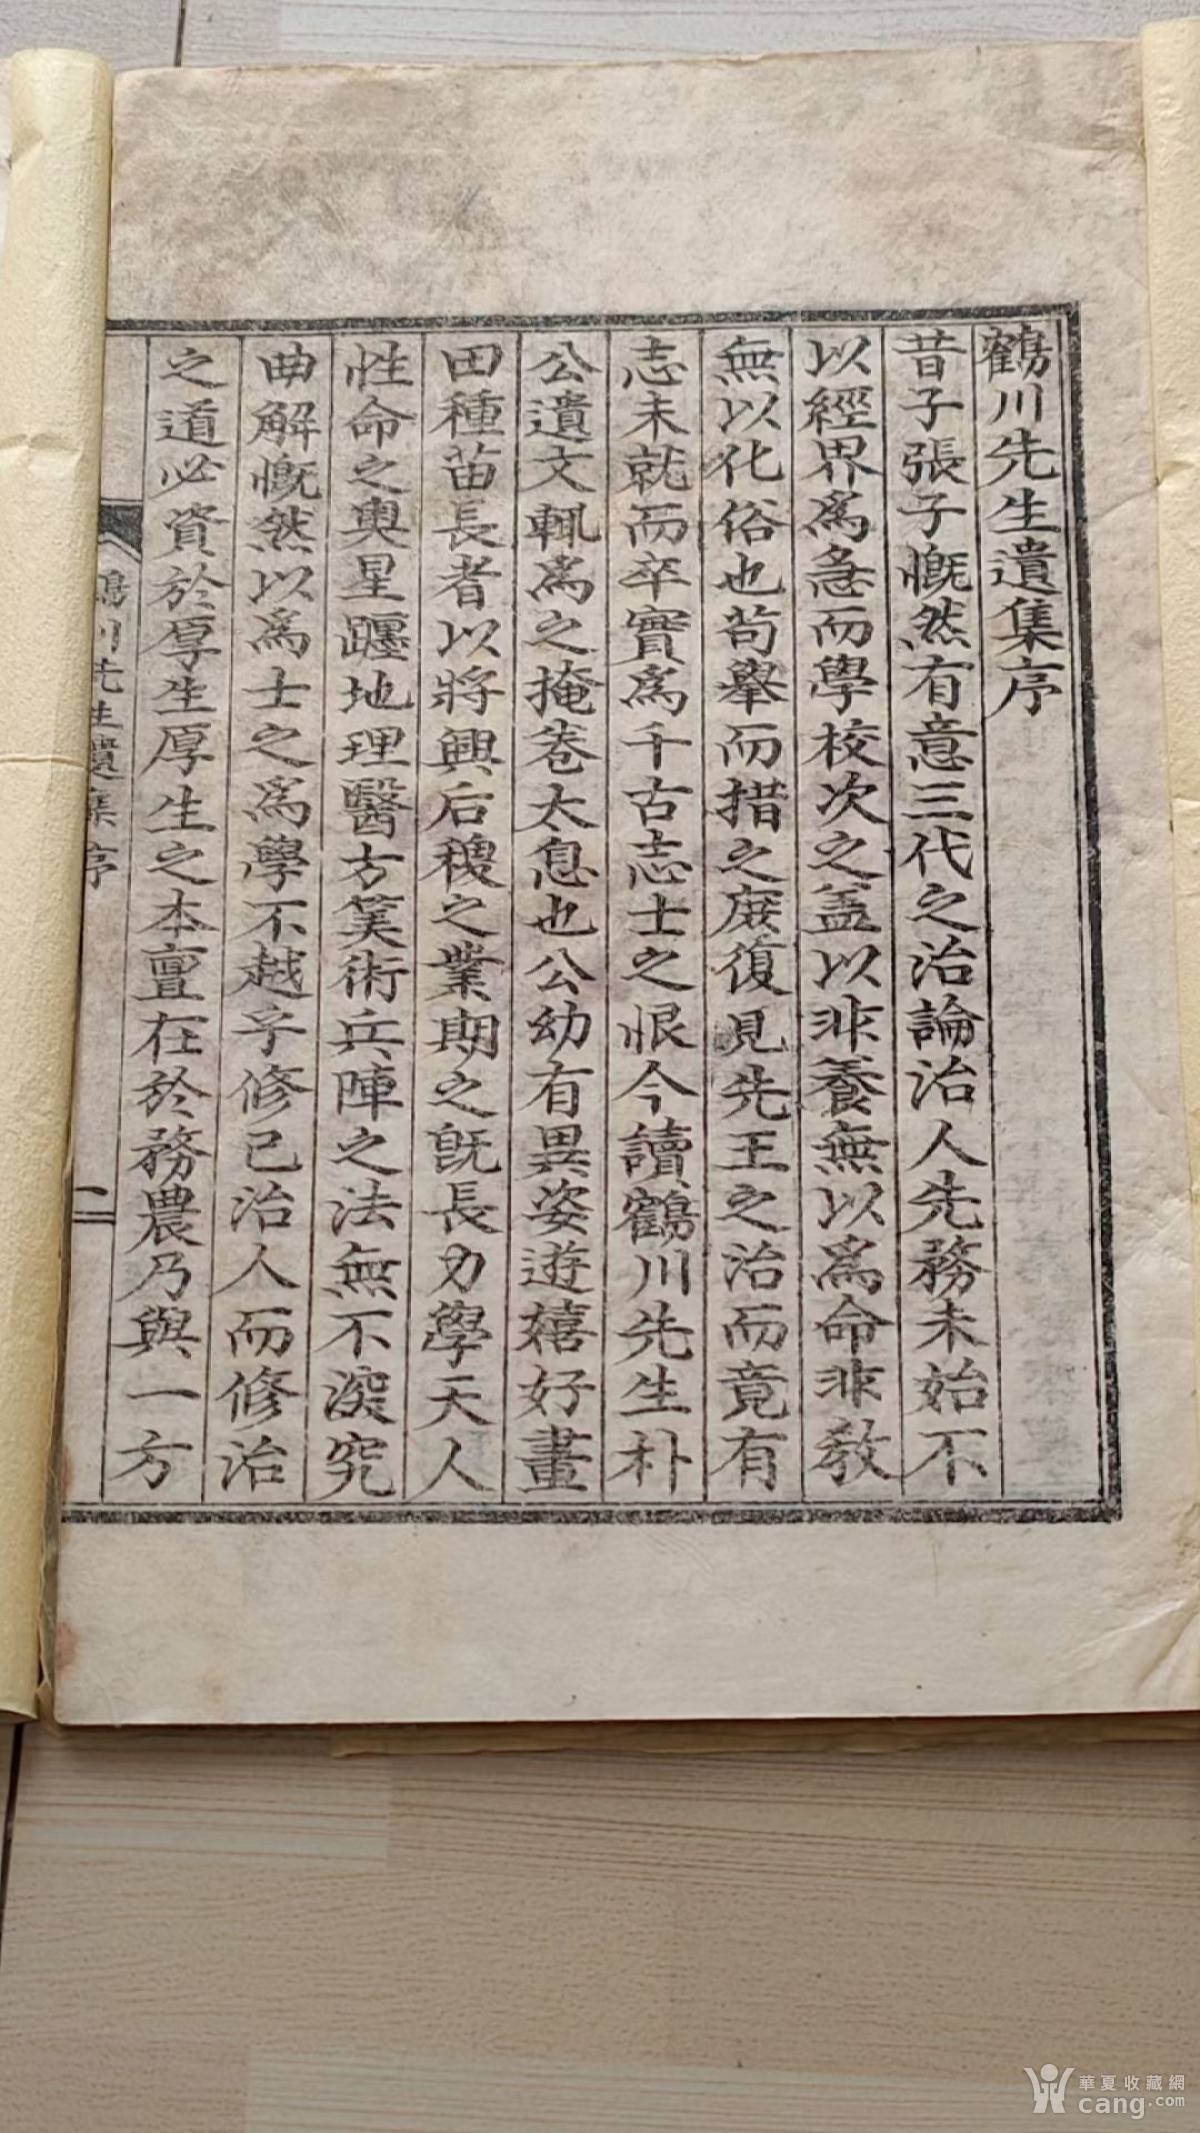 鶴川先生遺集序
昔子張子慨然有意三代之治論治人先務未始不
以經界爲急而學校次之盖以非養無以爲命非敎
無以化俗也苟擧而措之庶復見先王之治而竟有
志未就而卒實爲千古志士之恨今讀鶴川先生朴
公遺文輒爲之掩卷太息也公幼有異姿遊嬉好畫
田種苗長者以將興后稷之業期之旣長力學天人
性命之奥星躔地理醫方筭術兵陣之法無不深究
曲解慨然以爲士之爲學不越乎修己治人而修治
之道必資於厚生厚生之本亶在於務農乃與一方
鶴川先生遺集序
二
華夏收藏網
cang.com